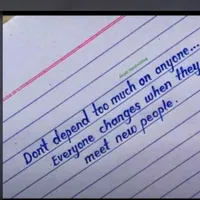 Don't depend too much on anyone...
Everyone changes when they
meet new people.